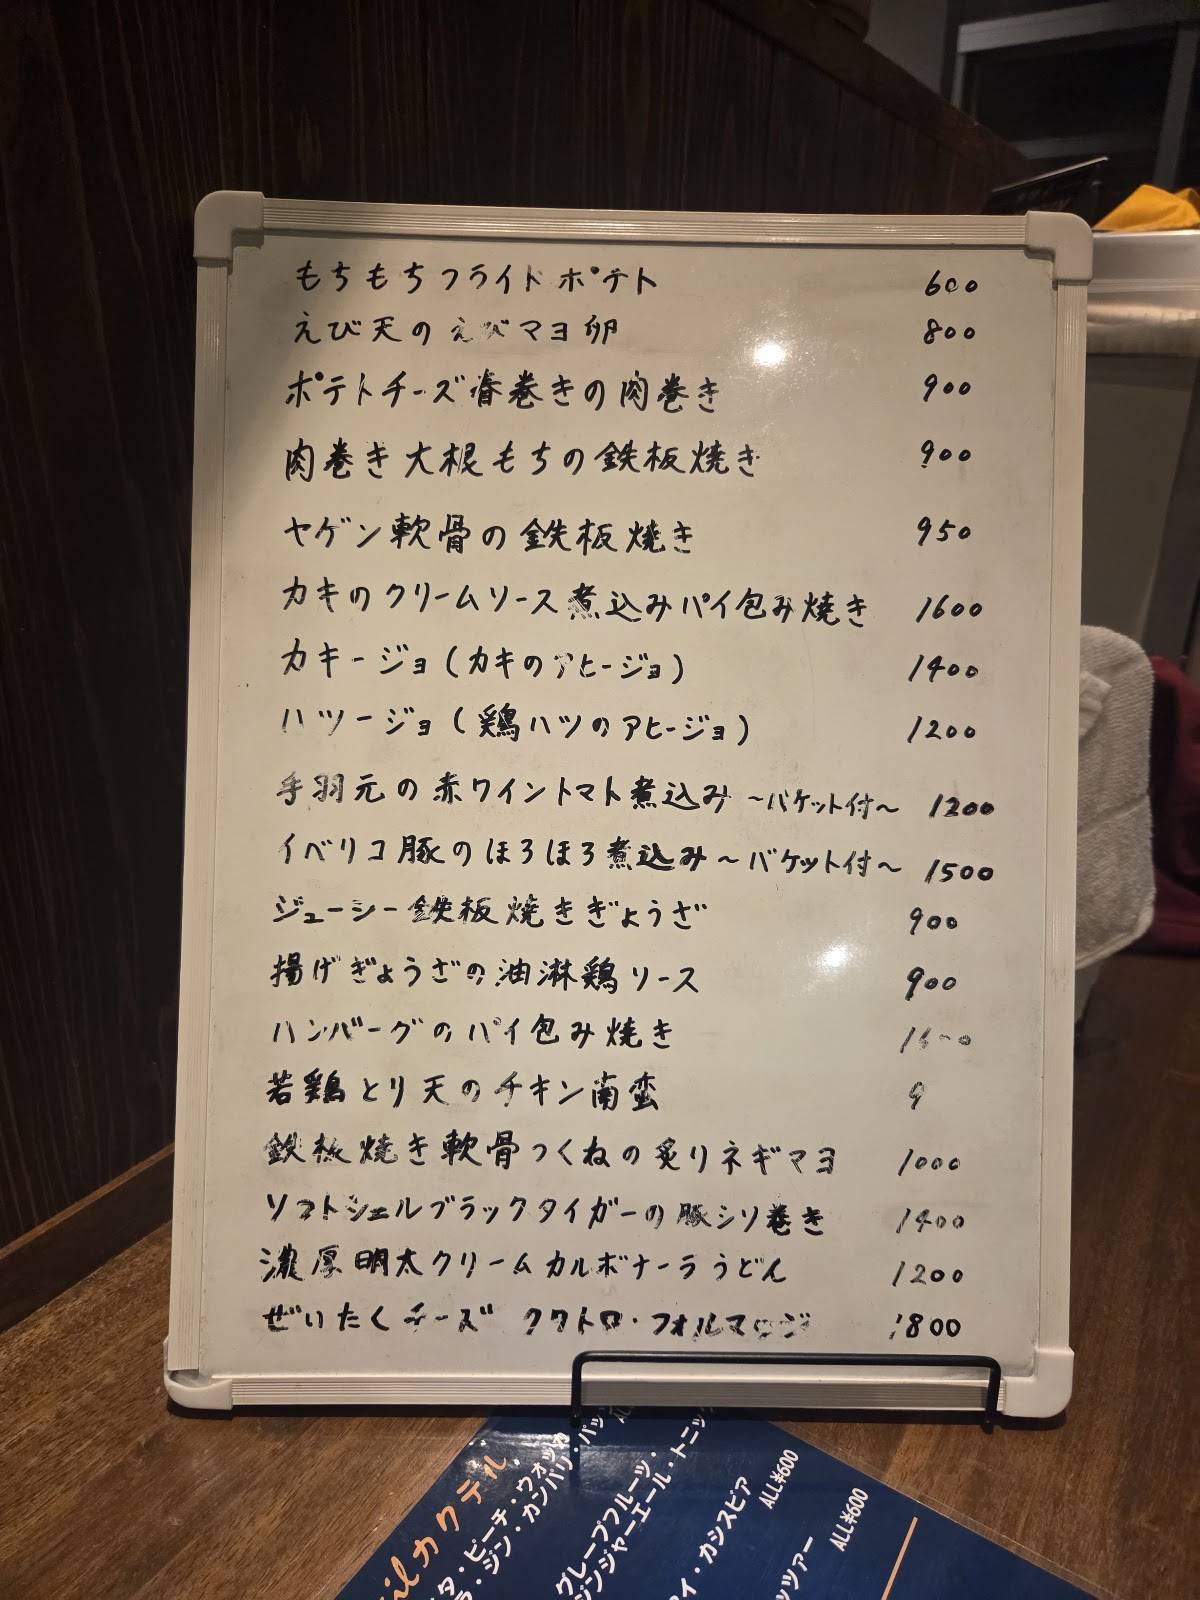 もちもちフライドポテト 600
えび天のえびマヨ卵 800
ポテトチーズ春巻きの肉巻き 900
肉巻き大根もちの鉄板焼き 900
ヤゲン軟骨の鉄板焼き 950
カキのクリームソース煮込みパイ包み焼き 1600
カキージョ(カキのアヒージョ) 1400
ハツージョ(鶏ハツのアヒージョ) 1200
手羽元の赤ワイントマト煮込み ~バケット付~ 1200
イベリコ豚のほろほろ煮込み ~バケット付~ 1500
ジューシー鉄板焼きぎょうざ 900
揚げぎょうざの油淋鶏ソース 900
ハンバーグのパイ包み焼き
若鶏とり天のチキン南蛮 9
鉄板焼き軟骨つくねの炙りネギマヨ 1000
ソフトシェルブラックタイガーの豚シソ巻き 1400
濃厚明太クリームカルボナーラうどん 1200
ぜいたくチーズ クワトロ・フォルマッジ 1800
カクテル
ピーチ・ウォッカ
ジン・カンパリ・パッ
グレープフルーツ・
ジンジャーエール・トニッ
カシスピア ALL¥600
ッツァー ALL¥600